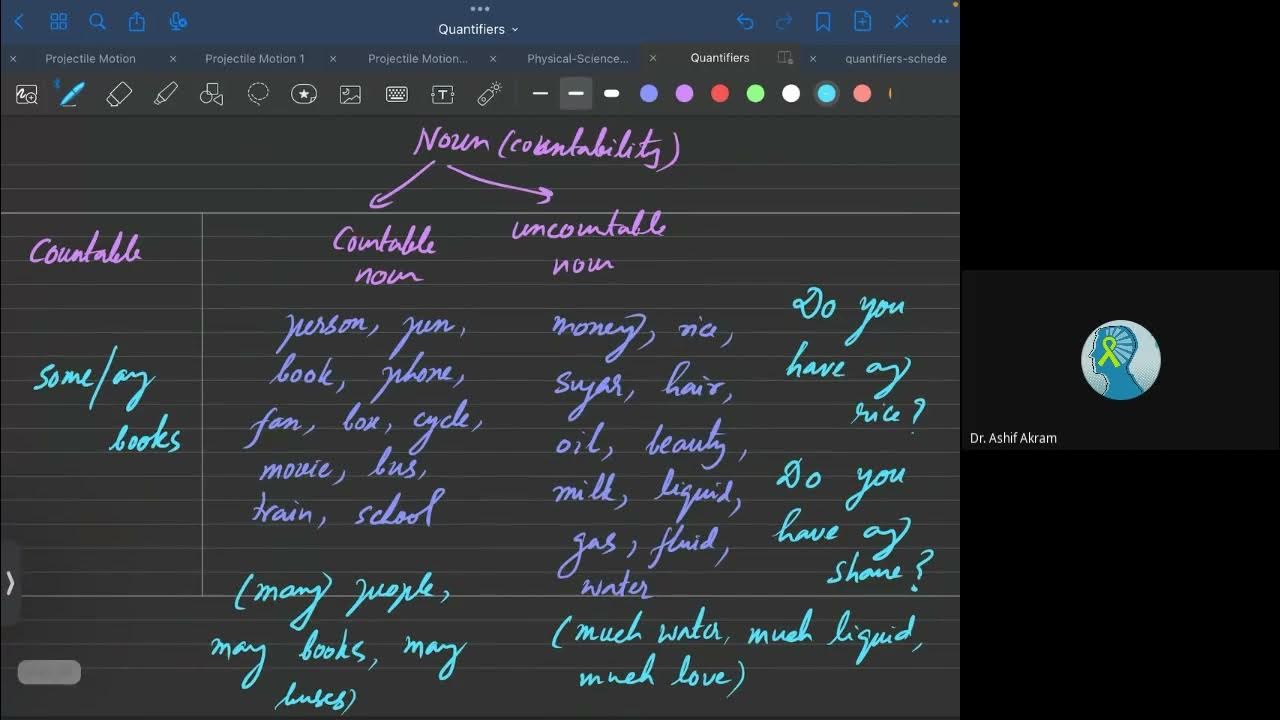 Quantifiers
Projectile Motion
Projectile Motion 1
Projectile Motion...
Physical-Science...
Quantifiers
quantifiers-schede
T
Noun (countability)
Countable
Countable
noun
uncountable
noun
some/any
books
person, pen,
book, phone,
fan, box, cycle,
movie, bus,
train, school
(many) people,
many books, many
buses)
money, rice,
sugar, hair,
oil, beauty,
milk, liquid,
gas, fluid,
water
(much water, much liquid,
much love)
Do you
have any
rice?
Do you
have any
shame?
Dr. Ashif Akram